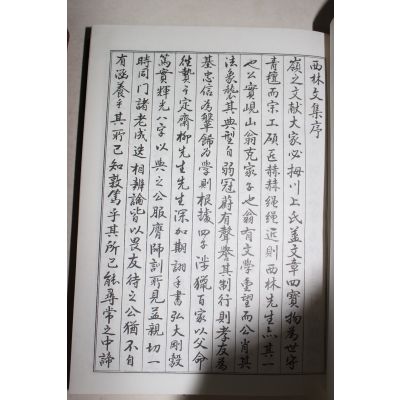 西林文集序
嶺之文献大家必拇川上氏盖文章四寶拘為世守
青氊而宗工碩匠赫赫绳绳近則西林先生亦其一
也公實峴山翁克家子也翁有文學重望而公肖其
法象襲其典型自弱冠蔚有聲譽其制行則孝友為
基忠信為鞏歸為學則根據四子涉獵百家以父命
贄于定齋柳先生先生深加期詡手書弘大剛毅
篤實輝光八字以與之公服膺師訓所見益親切一
時同門諸老成迭相辨論皆以畏友待之公猶不自
有涵養乎其所已知敦篤乎其所已能尋常之中諦